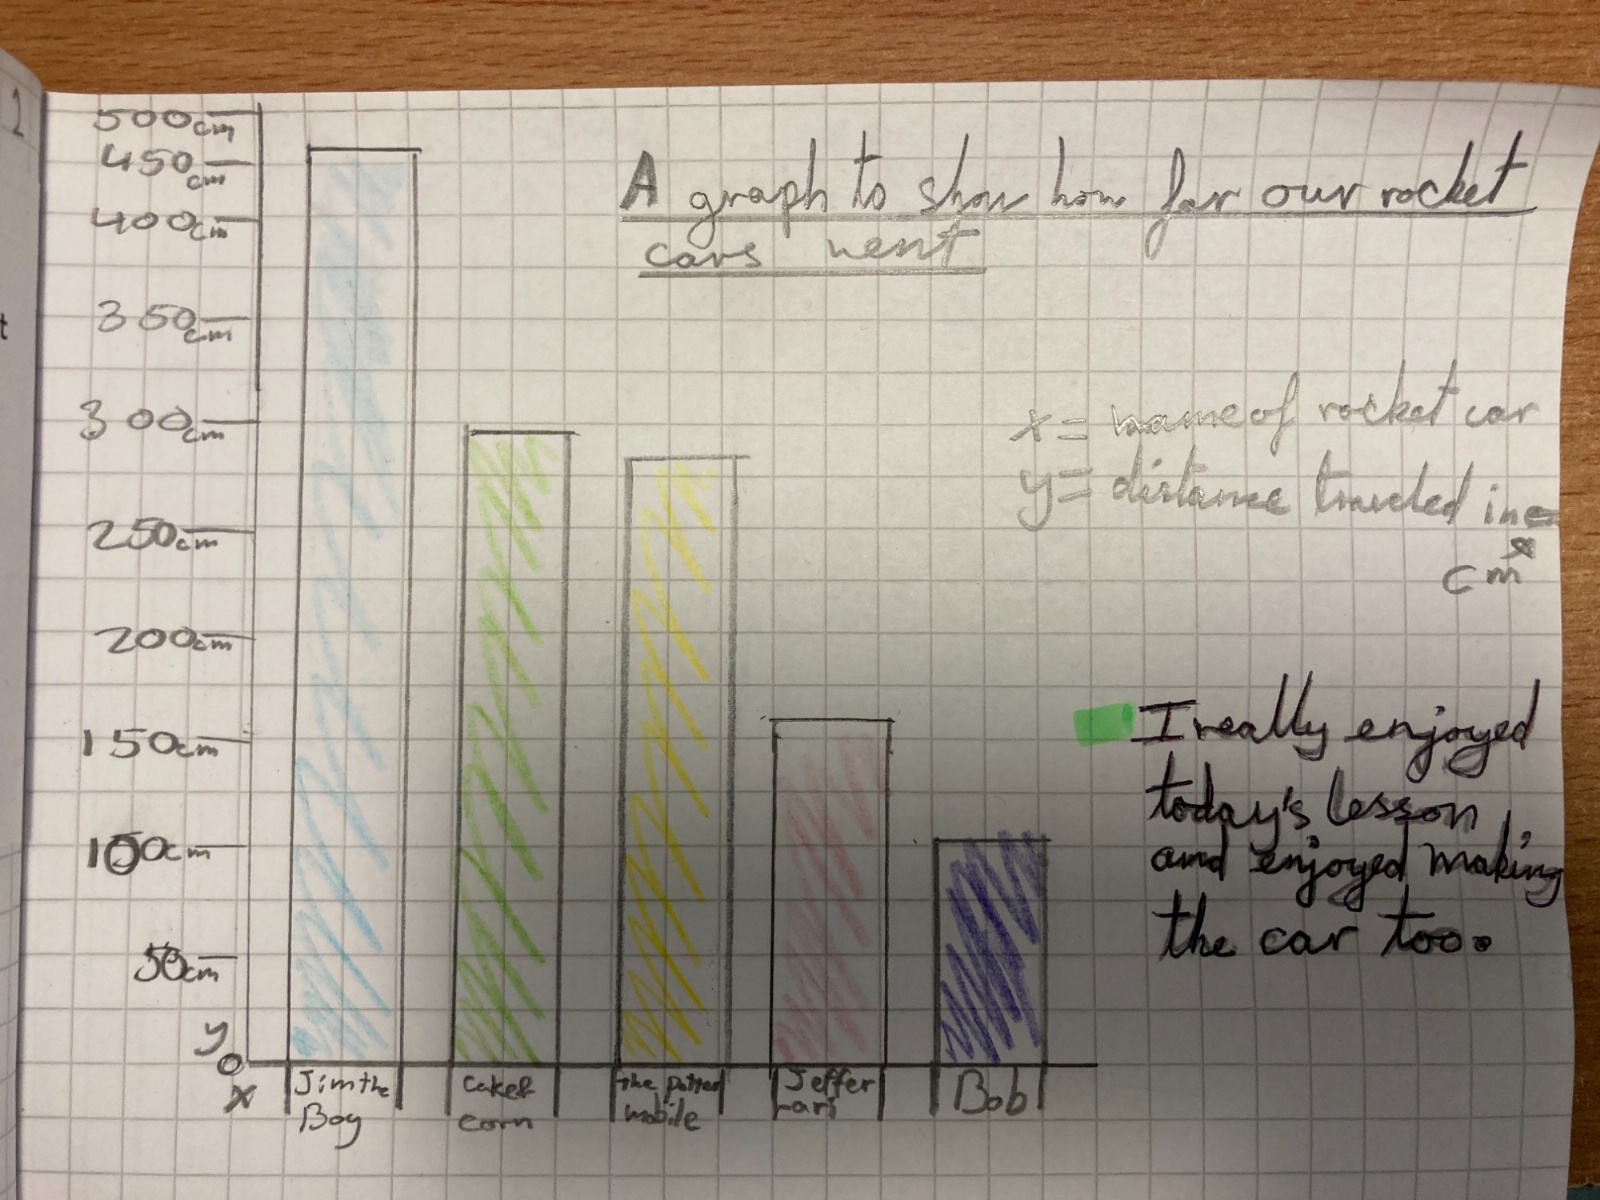 2
500cm
450cm
400cm
350cm
300cm
250cm
200cm
150cm
100cm
50cm
y
0
x
A graph to show how far our rocket
cars went
x = name of rocket car
y = distance traveled in
cm
I really enjoyed
today's lesson
and enjoyed making
the car too.
Jim the
Boy
corn
the potter
mobile
Jeffer
Bob
t